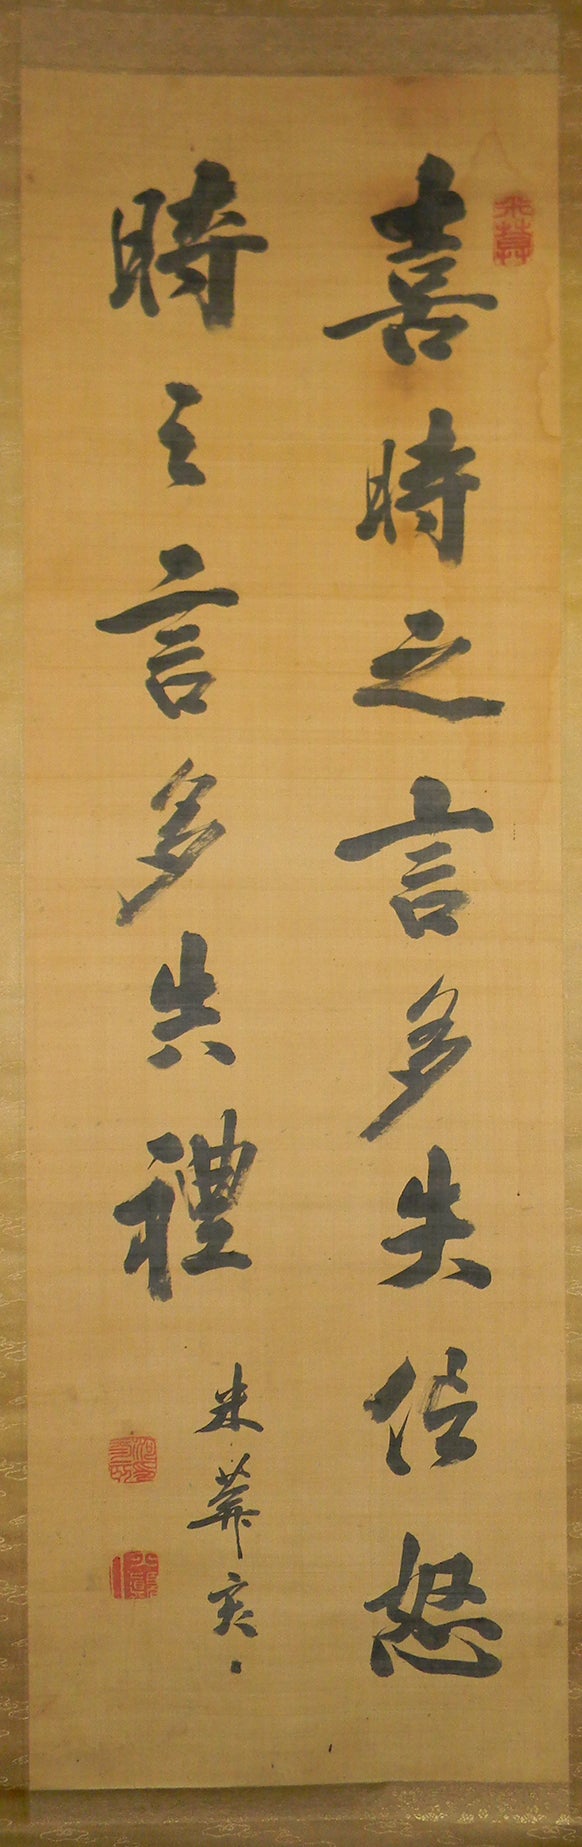 喜時之言多失信怒
時之言多失禮
米菴亥